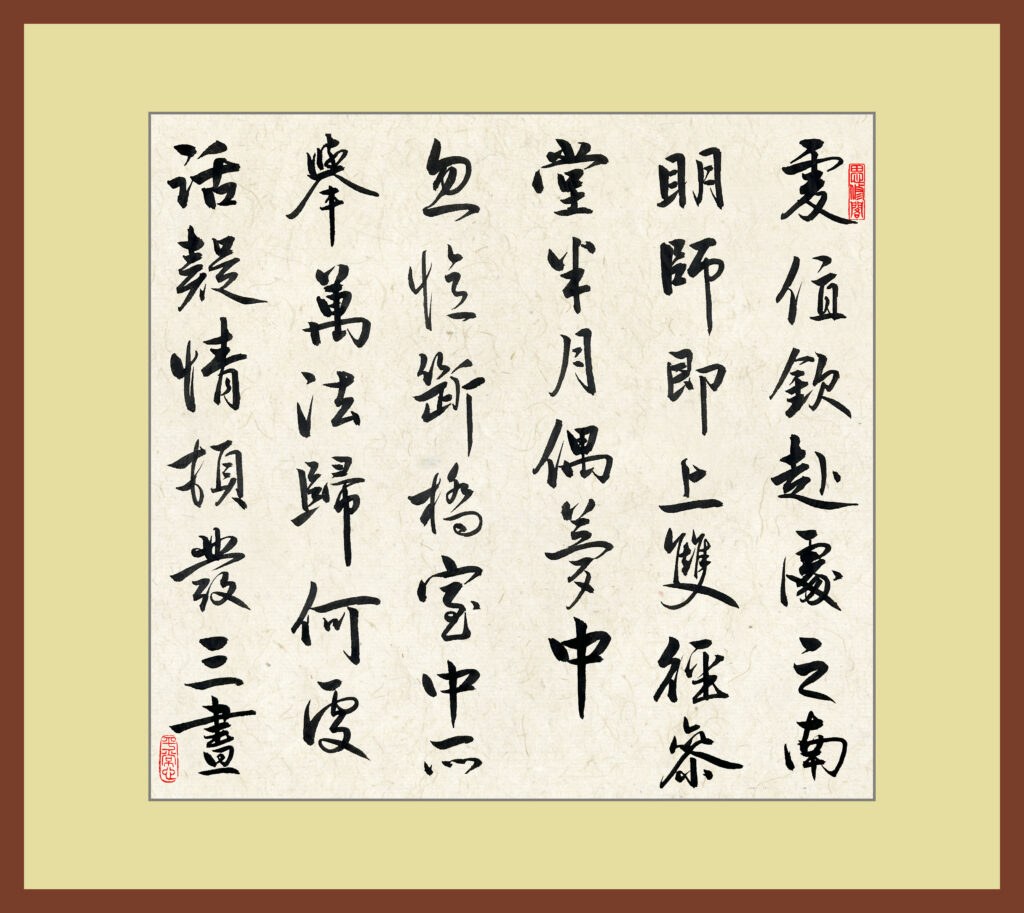 思修閣
虔值欽赴處之南
明師即上雙徑參
堂半月偶夢中
忽憶斷橋室中所
舉萬法歸何處
話疑情頓發三晝
平常心